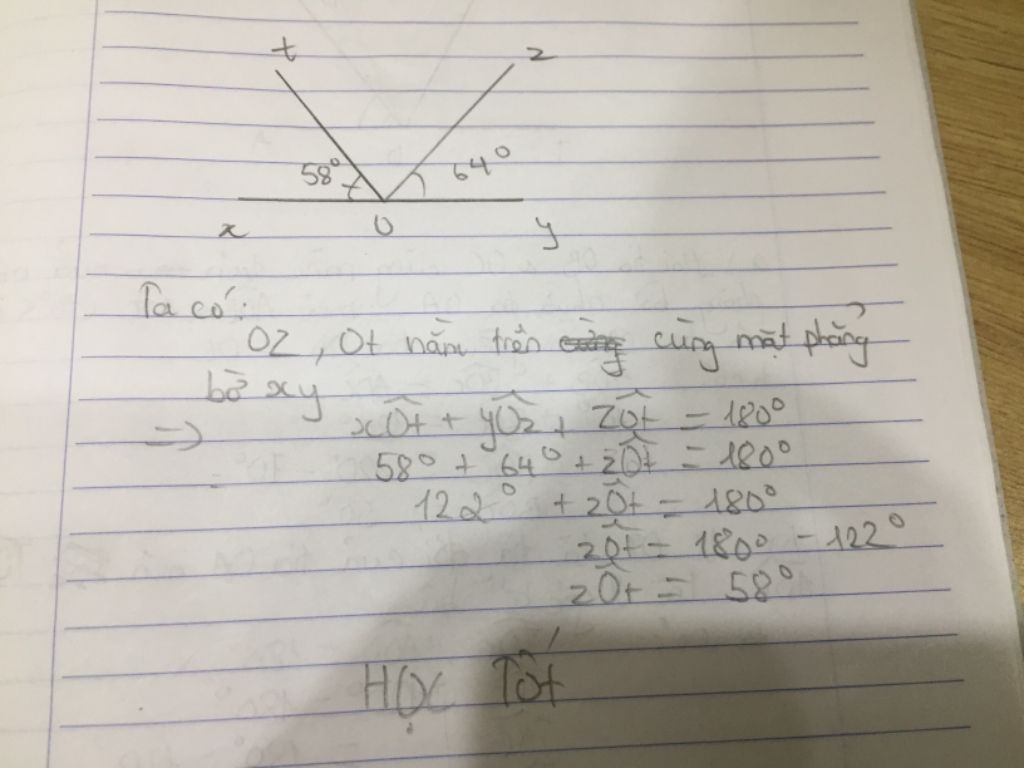 t z
58° 64°
x O y
Ta có:
OZ, Ot nằm trên cùng mặt phẳng
bờ xy
=> xÔt + yÔz + zÔt = 180°
58° + 64° + zÔt = 180°
122° + zÔt = 180°
zÔt = 180° - 122°
zÔt = 58°
HỌC TỐT